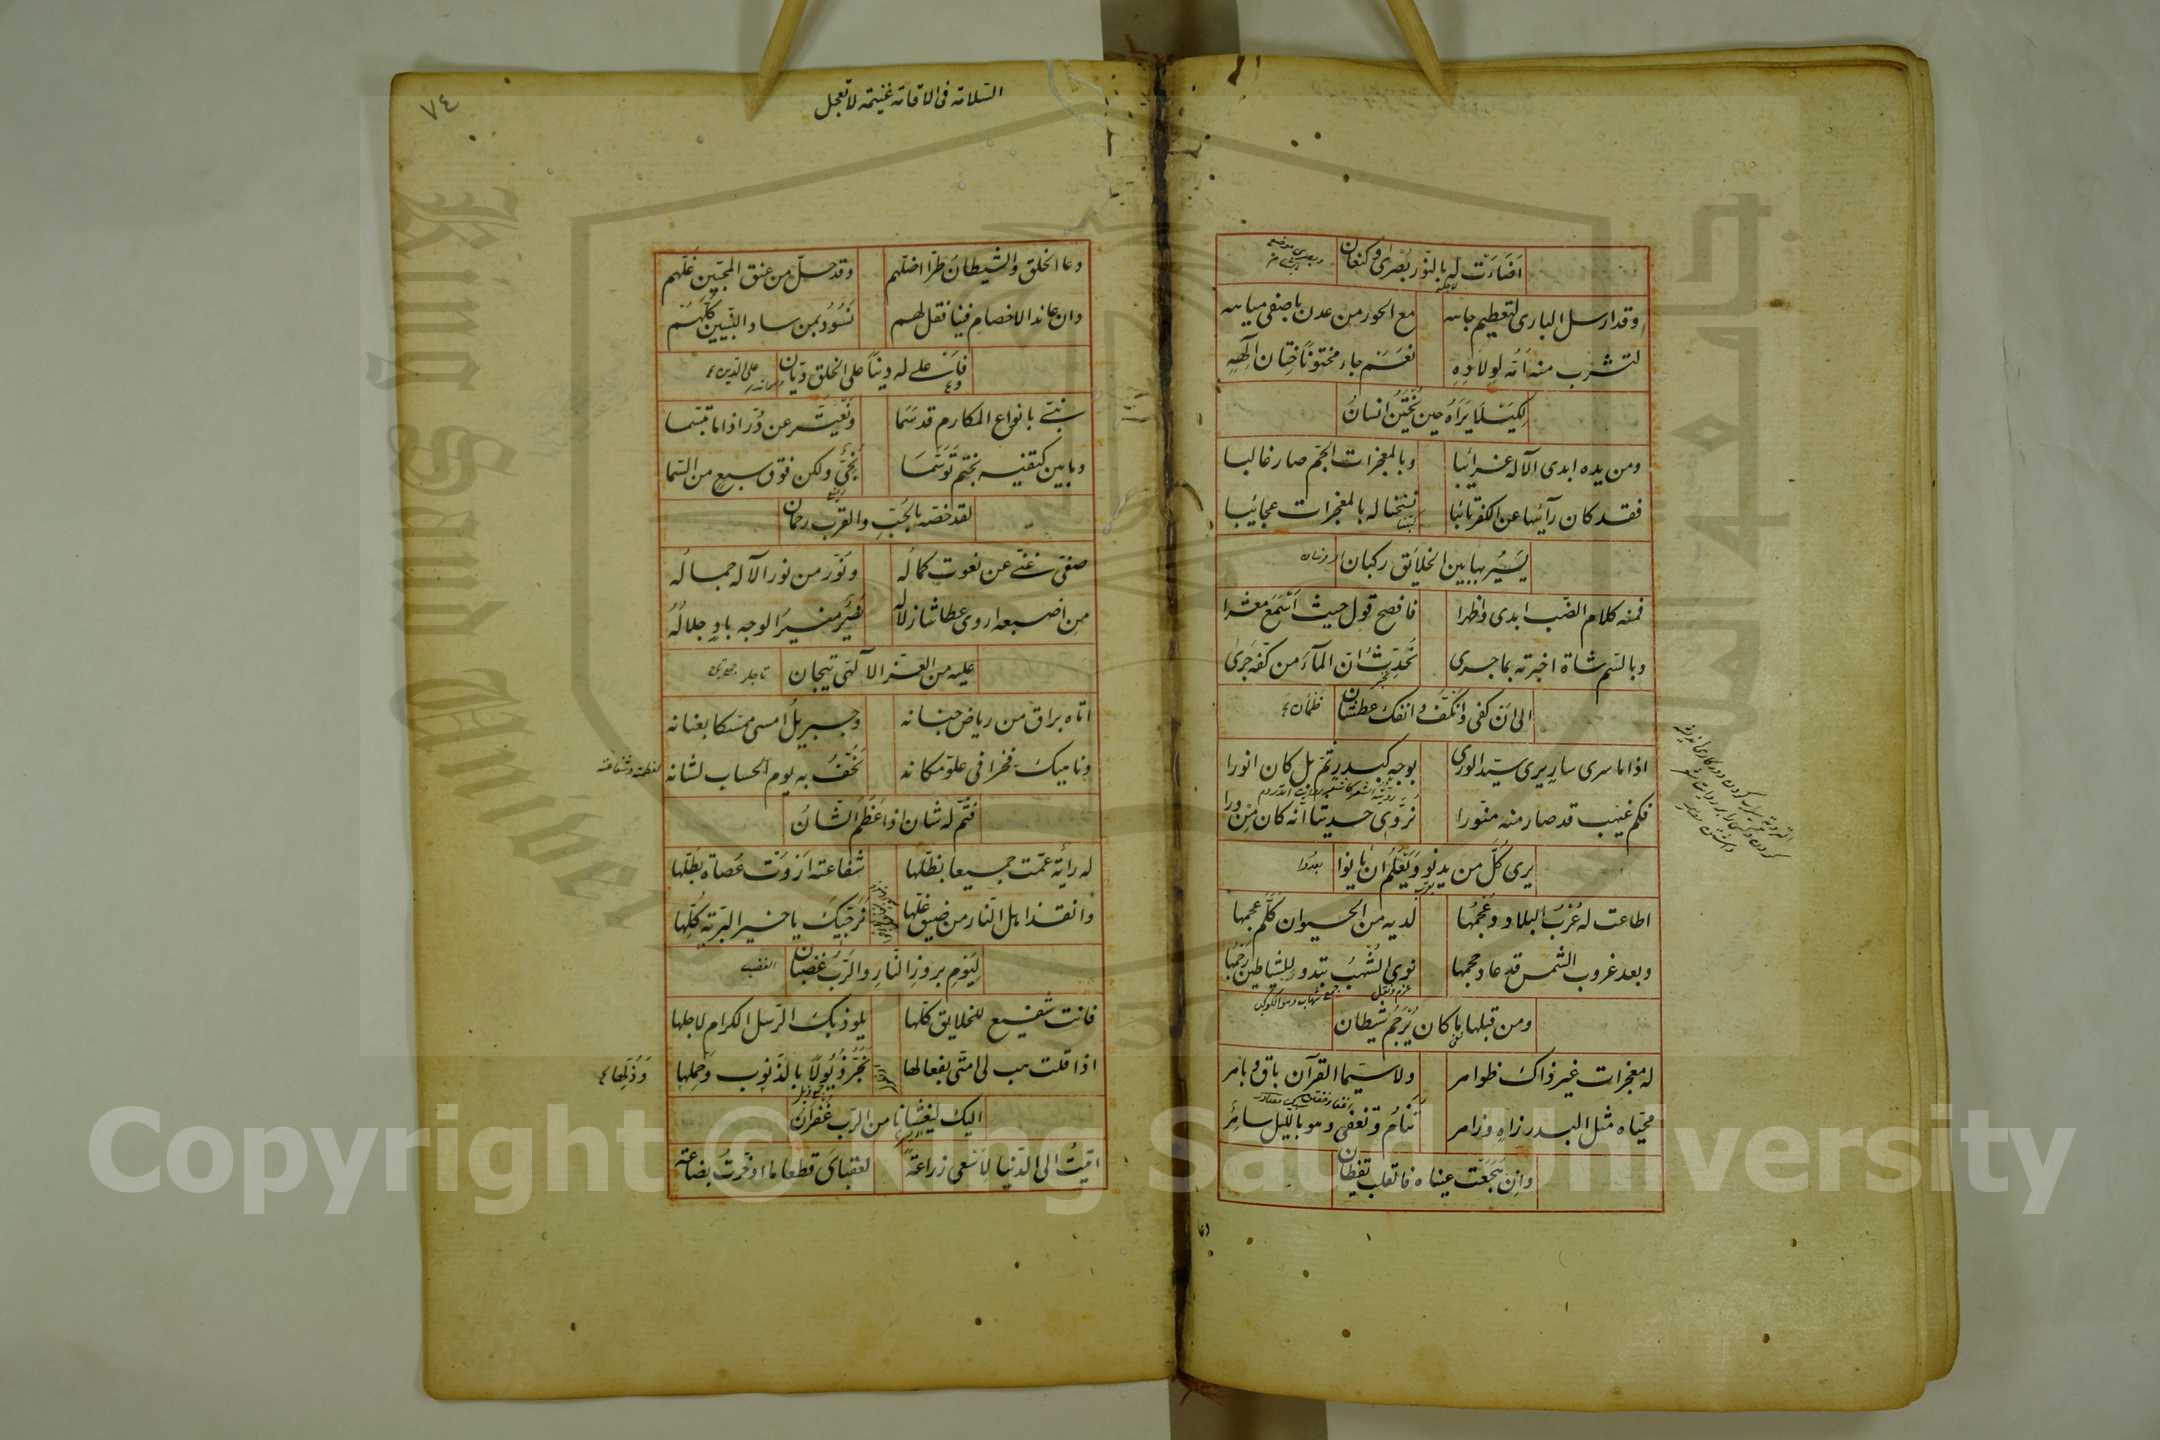 اضاءت له بالنور بصرى وكنعان
وقد ارسل البارى لتعظيم جاهه مع الحور من عدن باصفى مياهه
لتشرب منه امّه لولاده نعم ثم جاء مختونا ختان الٰهه
لكيلا يراه حين يختن انسان
ومن يده ابدى الاله غرائبا وبالمعجزات الجم صار غالبا
فقد كان رآئيها عن الكفر تائبا نسخنا له بالمعجزات عجائبا
يسير بها بين الخلايق ركبان
فمنه كلام الضب ابدى واظهرا فافصح قول حيث اسمع معشرا
وبالسم شاة اخبرته بما جرى تحدث ان المآء من كفه جرى
الى ان كفى وانكف وانفك عطشان ظمآن
اذا ما سرى سار يرى سيد الورى بوجه كبدر تم بل كان انورا
فكم غيهب قد صار منه منورا نروى حديثا انه كان من ورا
يرى كل من يدنو ويعلم ان بانوا بعدوا
اطاعت له عرب البلاد وعجمها لديه من الحيوان كلم عجمها
وبعد غروب الشمس قد عاد جحمها نوى الشهب تبدو للشياطين رجمها
ومن قبلها ما كان يرجم شيطان
له معجزات غير ذاك ظواهر ولا سيما القرآن باق وباهر
محياه مثل البدر زاه وزاهر تنام وتغفى وهو بالليل ساهر
وان هجعت عيناه فالقلب يقظان
دعا
٧٤
السلامة فى الاقامة غنيمة لا تعجل
دعا الخلق والشيطان طرا اضلهم وقد حل من عنق المجيبين غلهم
وان عاند الاخصام فينا فقل لهم نسود بمن ساد النبيين كلهم
فاعلى له دينا على الخلق ديان
نبى بانواع المكارم قد سما ونغيثر عن در اذا ما تبسما
وما بين كتفيه بختم توسما نجى ولكن فوق سبع من السما
لقد خصه بالحب والقرب رحمان
صفى غنى عن نعوت كماله ونور من نور الاله جماله
من اصبعه اروى عطاشا زلاله منير الوجه باد جلاله
عليه من العز الالهى تيجان
اتاه براق من رياض جنانه وجبريل امسى ممسكا بعنانه
وناهيك فخرا فى علو مكانه نخف به يوم الحساب لشانه
فتم له شان اذا عظم الشان
له راية عمت جميعا بظلها شفاعته ازوت عصاة بطلها
وانقذ اهل النار من ضيق غلها نرجيك يا خير البرية كلها
ليوم بروز النار والرب غضبان
فانت شفيع للخلايق كلها يلوذ بك الرسل الكرام لاجلها
اذا قلت هب لى امتى بفعالها نجر ذيولا بالذنوب وحملها
اليك ليغشانا من الرب غفران
اتيت الى الدنيا لاسعى زراعة لعقباى قطعا ما ادخرت بضاعة